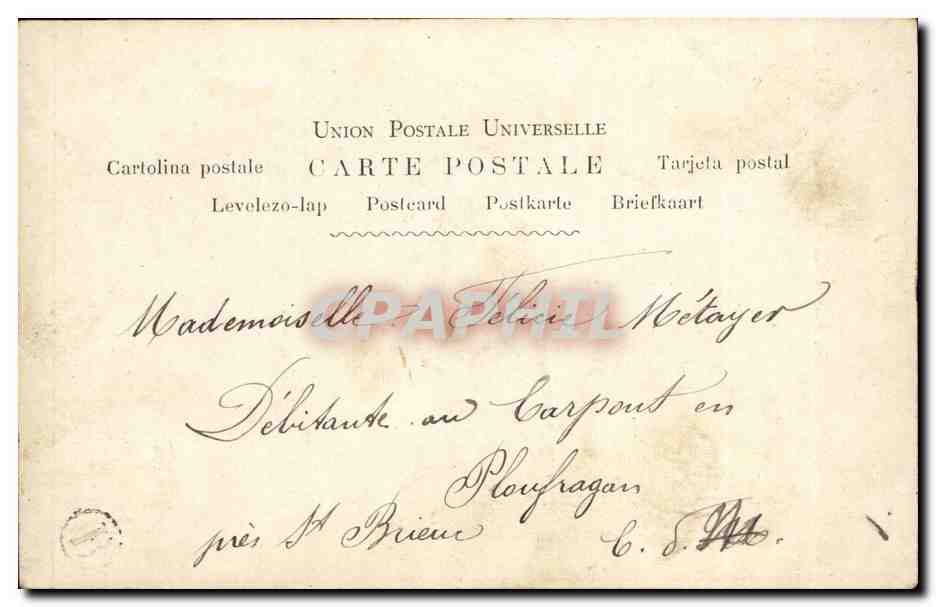 UNION POSTALE UNIVERSELLE
Cartolina postale CARTE POSTALE Tarjeta postal
Levelezo-lap Postcard Postkarte Briefkaart
CPAPHIL
Mademoiselle Félicie Métayer
Débitante au Carpont en
Ploufragan
près St Brieuc C. d.
B